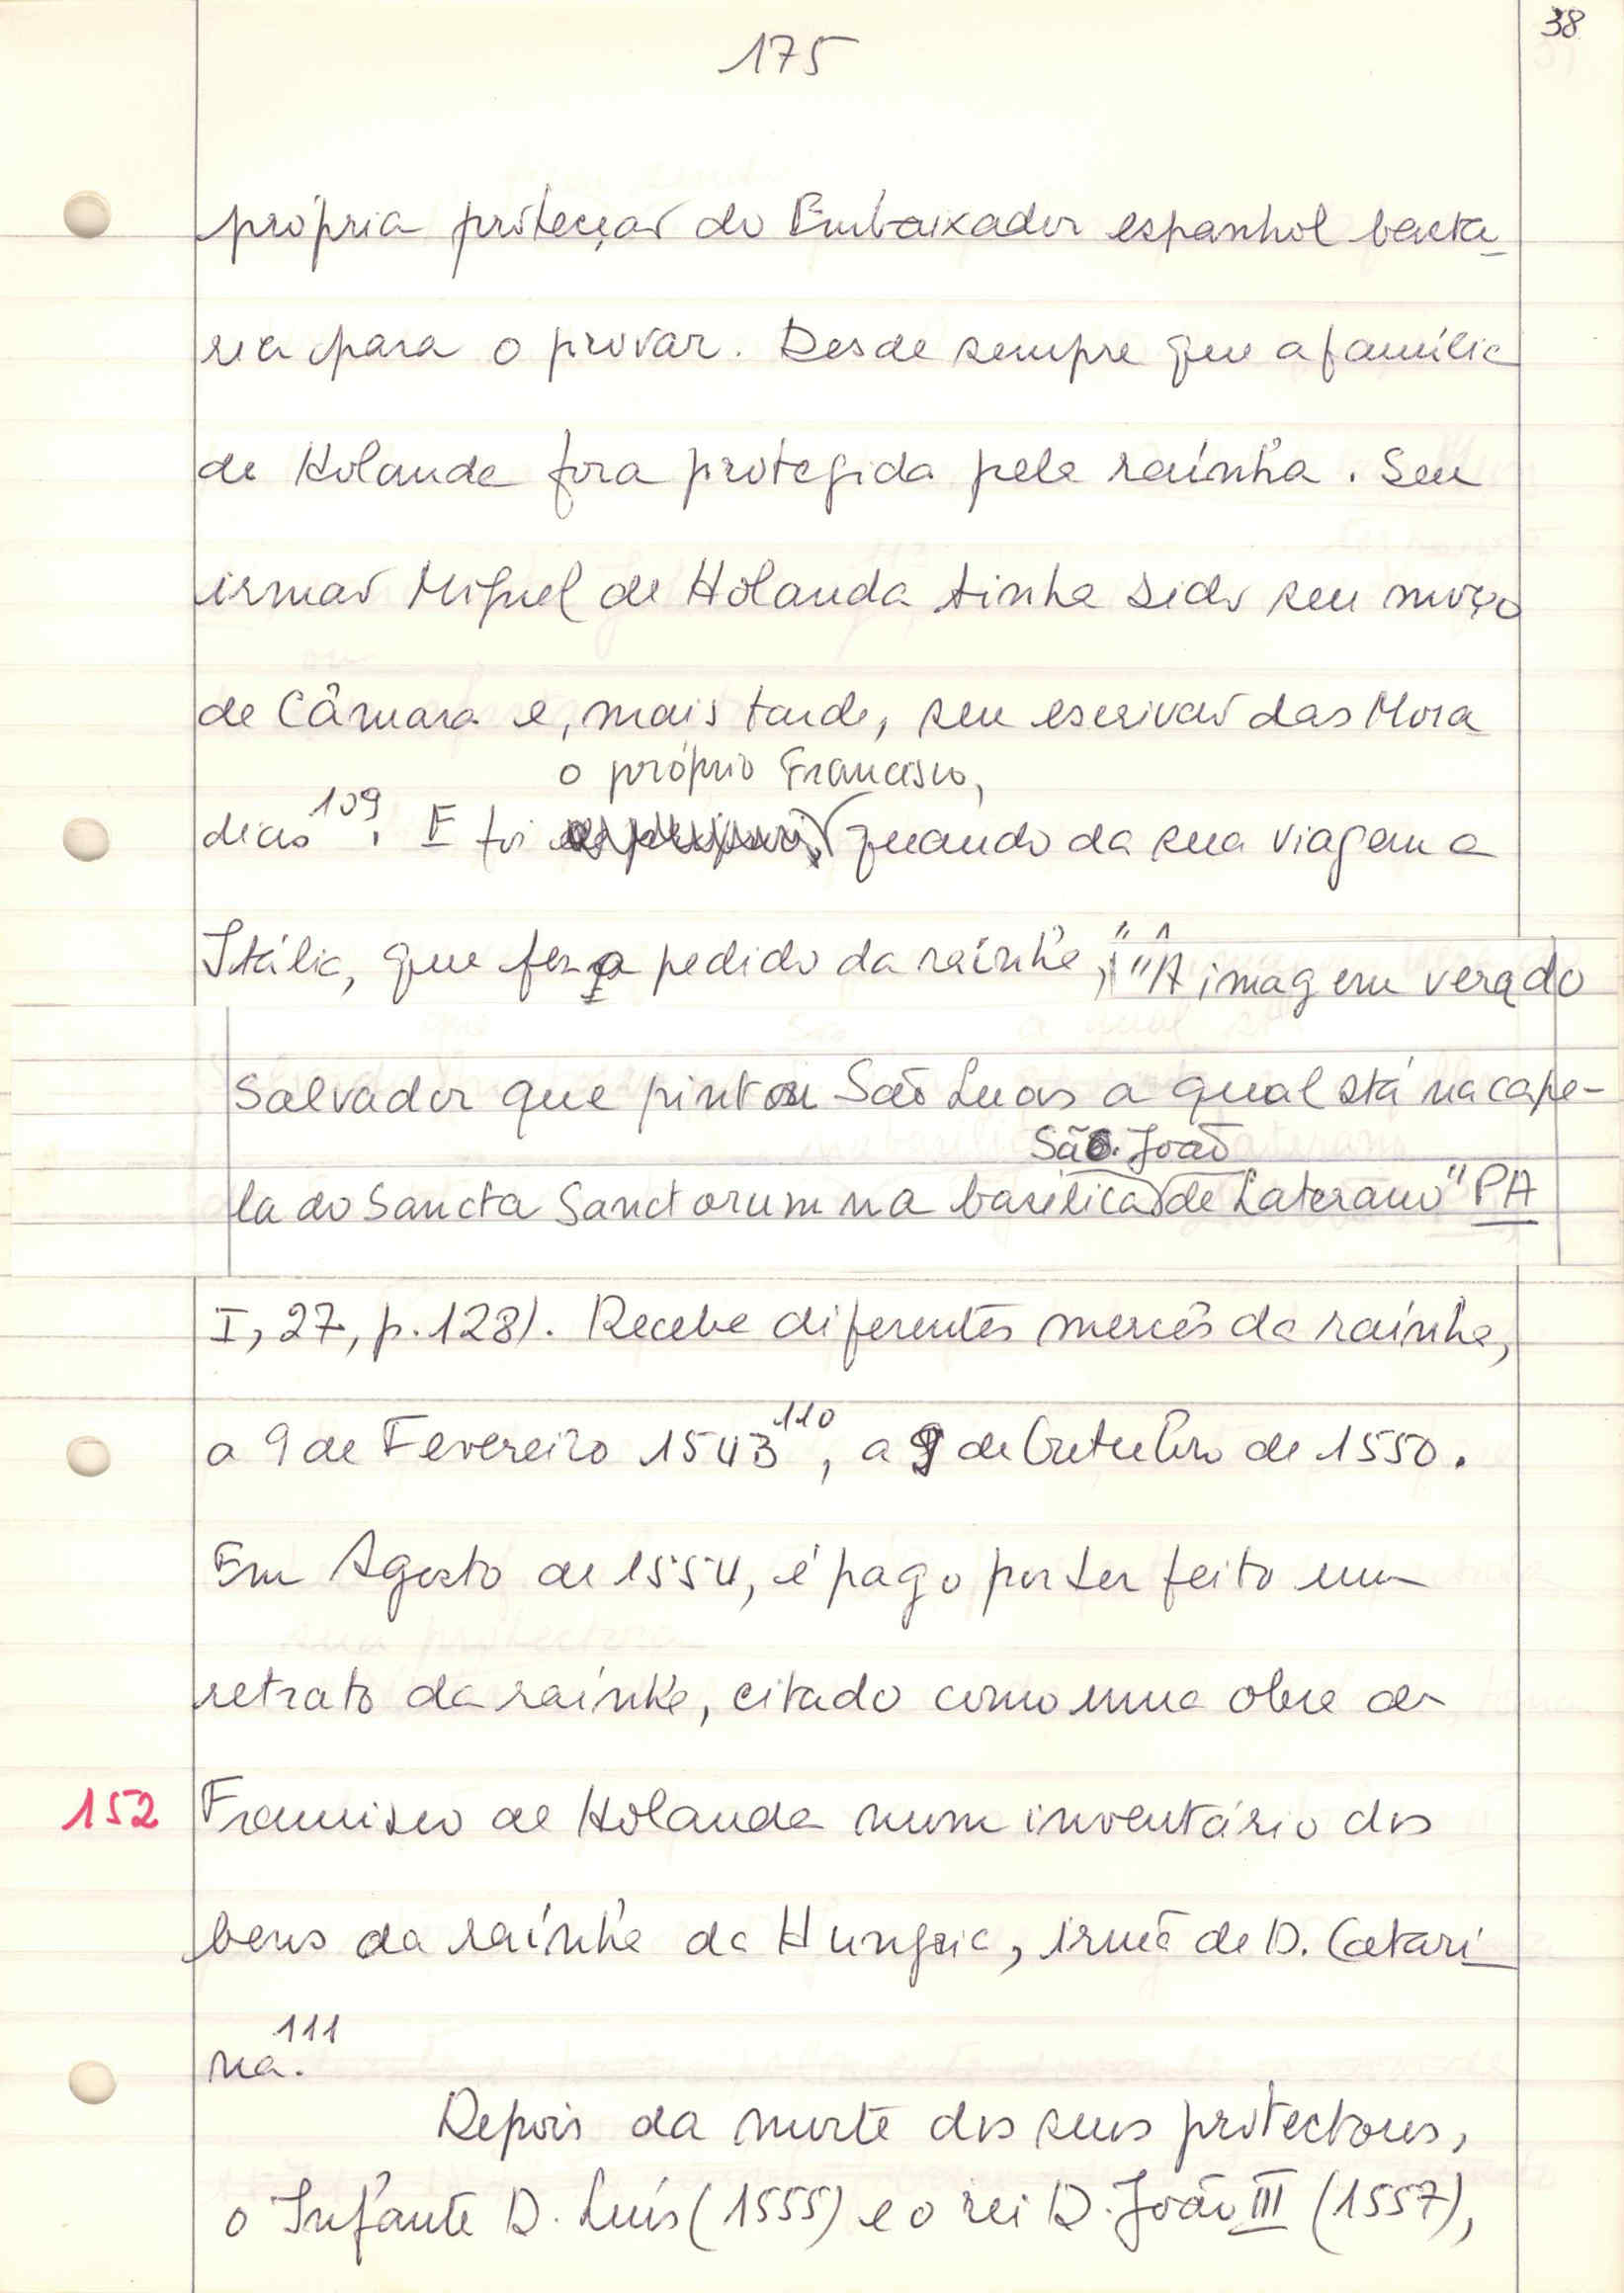 38
175
própria protecção do Embaixador espanhol basta-
ria para o provar. Desde sempre que a família
de Holanda fora protegida pela rainha. Seu
irmão Miguel de Holanda tinha sido seu moço
de Câmara e, mais tarde, seu escrivão das Mora
o próprio Francisco,
dias 109. E foi quando da sua viagem a
Itália, que fez a pedido da rainha, "A imagem vera do
Salvador que pintou São Lucas a qual stá na cape-
São João
la do Sancta Sanctorum na basílica de Laterano" PA
I, 27, p. 128). Recebe diferentes mercês da rainha,
a 9 de Fevereiro 1543 110, a 9 de Outubro de 1550.
Em Agosto de 1554, é pago por ter feito um
retrato da rainha, citado como uma obra de
152 Francisco de Holanda num inventário dos
bens da rainha da Hungria, irmã de D. Catari-
na. 111
Depois da morte dos seus protectores,
o Infante D. Luís (1555) e o rei D. João III (1557),